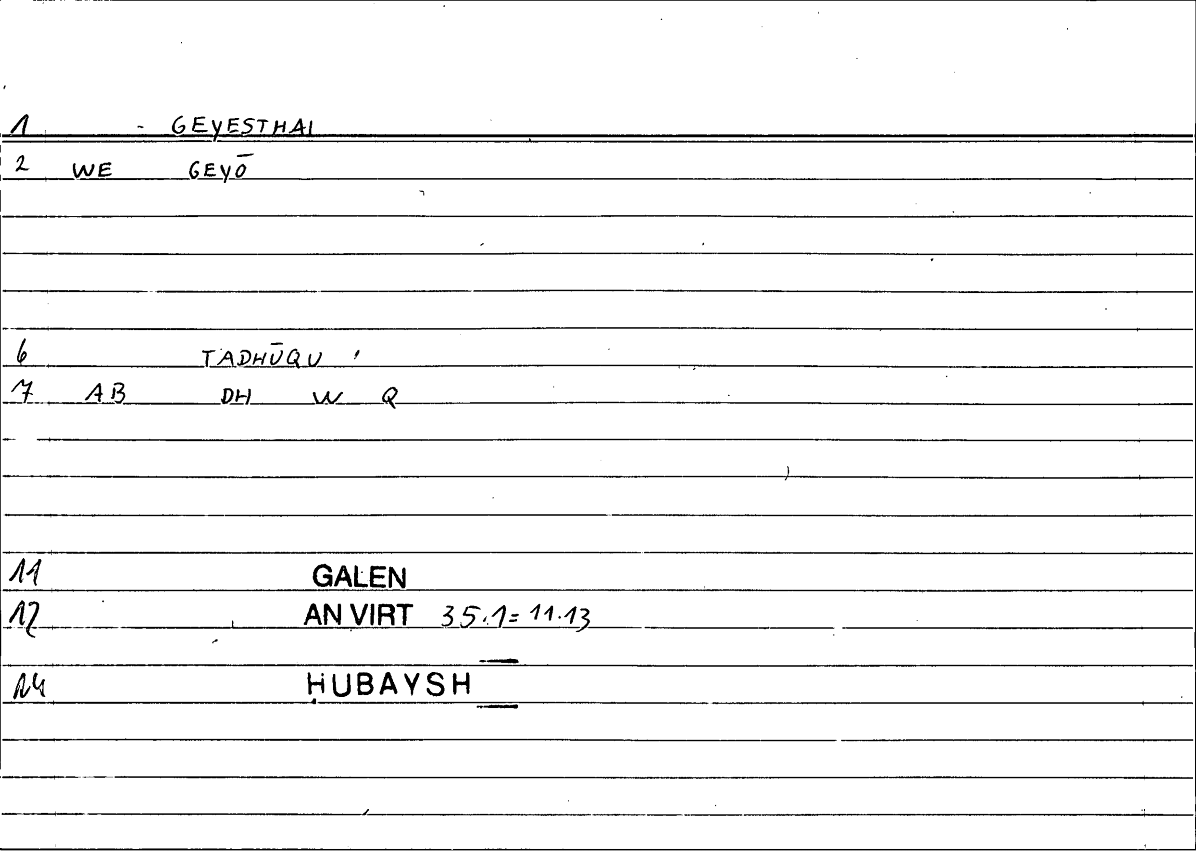 1 - GEYESTHAI
2 WE GEYŌ
6 TADHŪQU '
7 AB DH W Q
11 GALEN
12 AN VIRT 35.1= 11.13
14 ḤUBAYSH